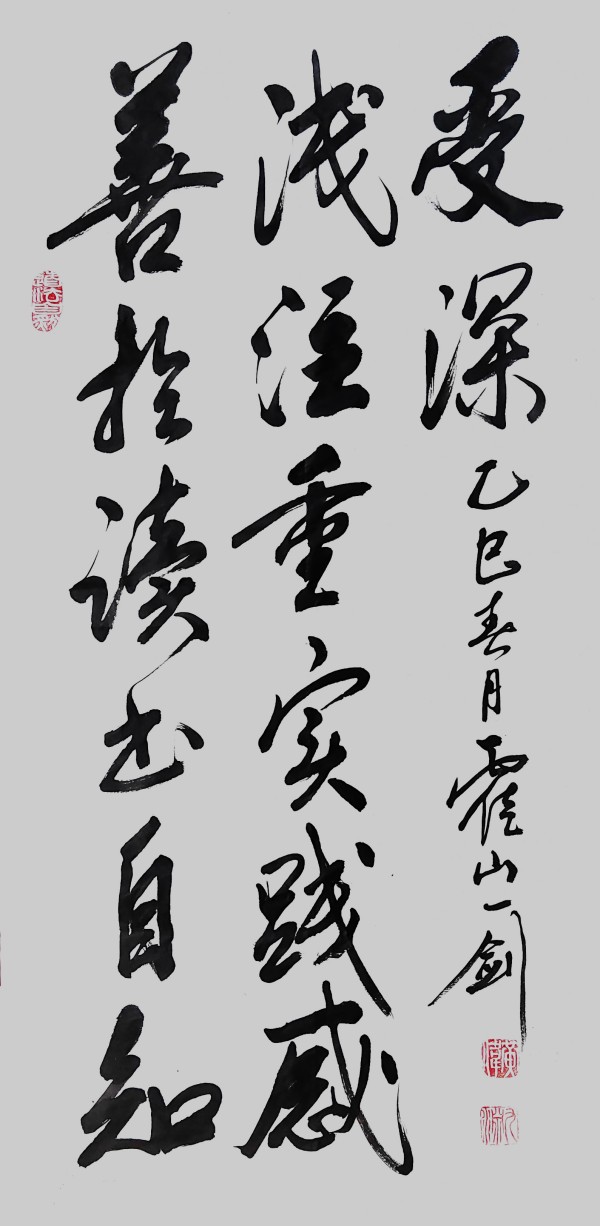 善於读书自知
浅注重实践感
受深
乙巳春月霍山一剑